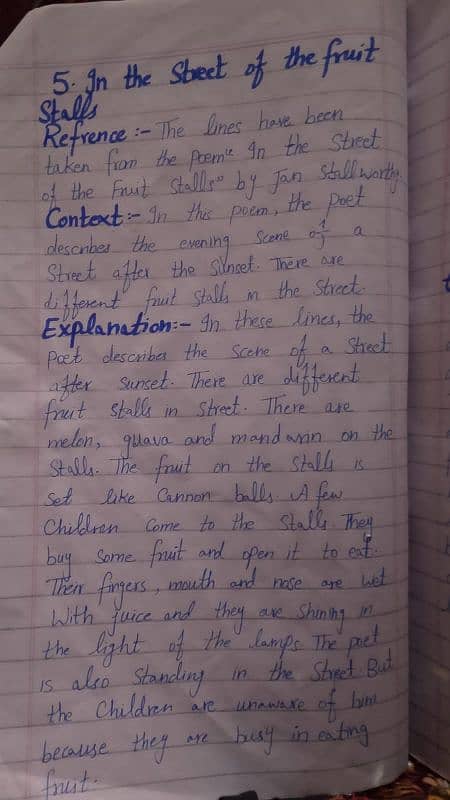 5. In the Street of the fruit
Stalls
Refrence :- The lines have been
taken from the Poem "In the Street
of the Fruit Stalls" by Jan Stallworthy.
Context :- In this poem, the Poet
describes the evening Scene of a
Street after the Sunset. There are
different fruit Stalls in the Street.
Explanation:- In these lines, the
Poet describes the Scene of a Street
after Sunset. There are different
fruit Stalls in Street. There are
melon, guava and mandarin on the
Stalls. The fruit on the Stalls is
Set like Cannon balls. A few
Children Come to the Stalls. They
buy Some fruit and open it to eat.
Their fingers, mouth and nose are wet
With juice and they are Shining in
the light of the lamps. The poet
is also Standing in the Street. But
the Children are unaware of him
because they are busy in eating
fruit.